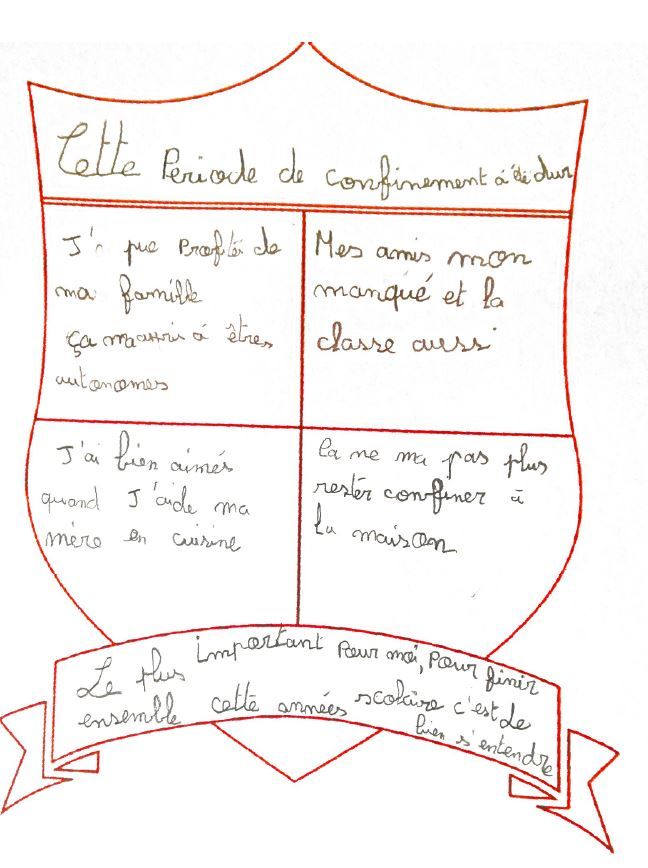 Cette Periode de confinement á été dur
J'ai pue Profité de
ma famille
ça m'appris á êtres
autonomes
Mes amis mon
manqué et la
classe aussi
J'ai bien aimés
quand J'aide ma
mère en cuisine
ça ne ma pas plus
restér confiner à
la maison
Le plus important Pour moi, Pour finir
ensemble cette années scolaire c'est de
bien s'entendre